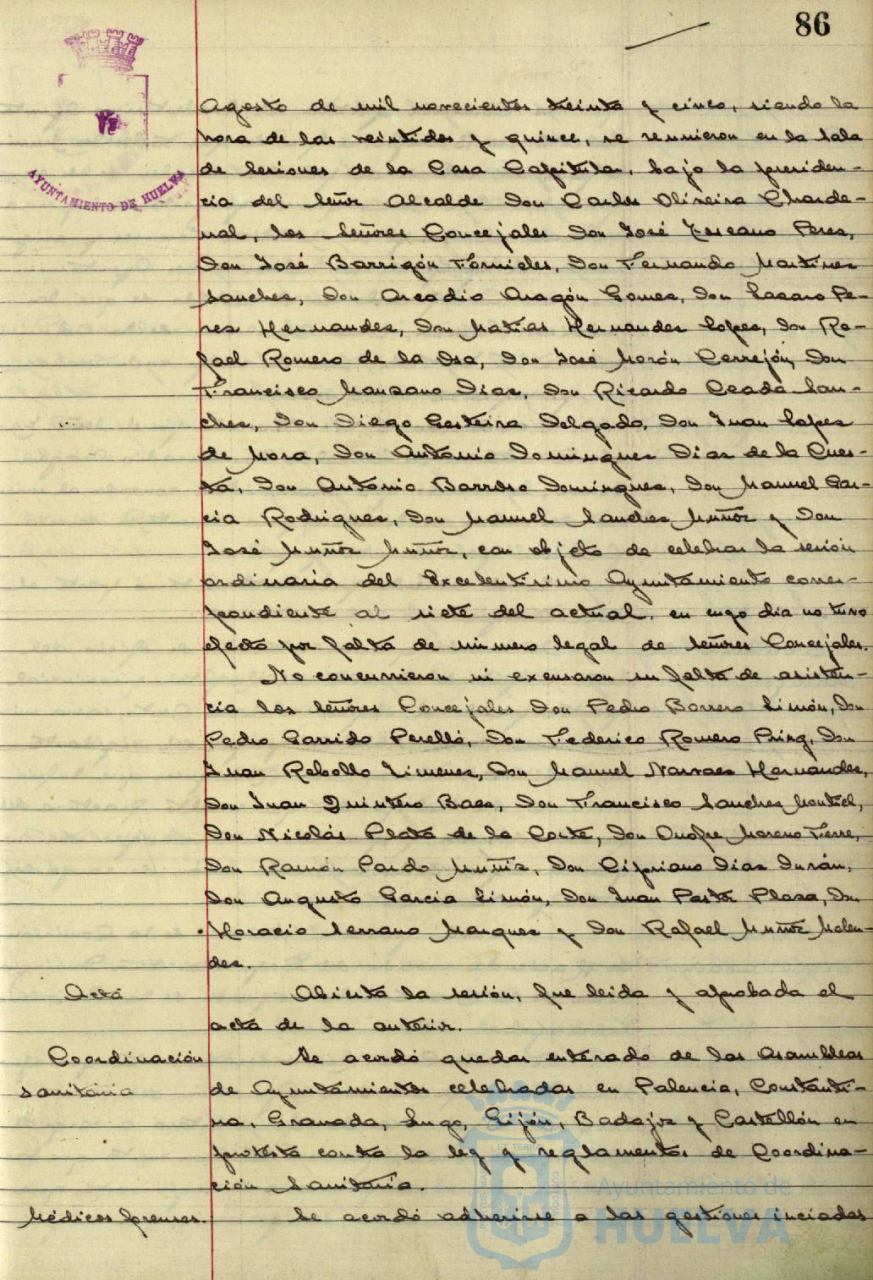 86
AYUNTAMIENTO DE HUELVA
Agosto de mil novecientos treinta y cinco, siendo la
hora de las veintidos y quince, se reunieron en la sala
de Sesiones de la Casa Capitular, bajo la presiden-
cia del Señor Alcalde Don Carlos Oliveira Charde-
nal, los Señores Concejales Don José Tescano Peres,
Don José Barrigón Fornieles, Don Fernando Martines
Sanches, Don Arcadio Aragón Gomes, Don Lasaro Pe-
res Hernandes, Don Matías Hernandes Lopes, Don Ra-
fael Romero de la Osa, Don José Morón Cerrejón, Don
Francisco Mansano Dias, Don Ricardo Ceada San-
ches, Don Diego Gesteira Delgado, Don Juan Lopes
de Mora, Don Antonio Domingues Dias de la Cues-
ta, Don Antonio Barroso Domingues, Don Manuel Gar-
cia Rodrigues, Don Manuel Sanches Muñoz y Don
José Muñoz Muñoz, con objeto de celebrar la sesión
ordinaria del Excelentísimo Ayuntamiento corres-
pondiente al siete del actual, en cuyo dia no tuvo
efecto por falta de número legal de Señores Concejales.
No concurrieron ni excusaron su falta de asisten-
cia los Señores Concejales Don Pedro Borrero Limón, Don
Pedro Garrido Perelló, Don Federico Romero Don
Juan Rebollo Jimenes, Don Manuel Narvaes Hernandes,
Don Juan Quintero Baes, Don Francisco Sanches Montiel,
Don Nicolás Plata de la Corte, Don Onofre Moreno
Don Ramón Pardo Muñiz, Don Cipriano Dias Durán,
Don Augusto Garcia Limón, Don Juan Pastor Plasa, Don
Horacio Serrano Marques y Don Rafael Muñoz Melen-
des.
Acta
Abierta la sesión, fue leida y aprobada el
acta de la anterior.
Coordinación
sanitaria
Se acordó quedar enterado de las Asambleas
de Ayuntamientos celebradas en Palencia, Constanti-
na, Granada, Lugo, Gijón, Badajoz y Castellón en
protesta contra la ley y reglamentos de Coordina-
ción Sanitaria.
Médicos forenses.
Se acordó adherirse a las gestiones inciadas
Ayuntamiento de
HUELVA